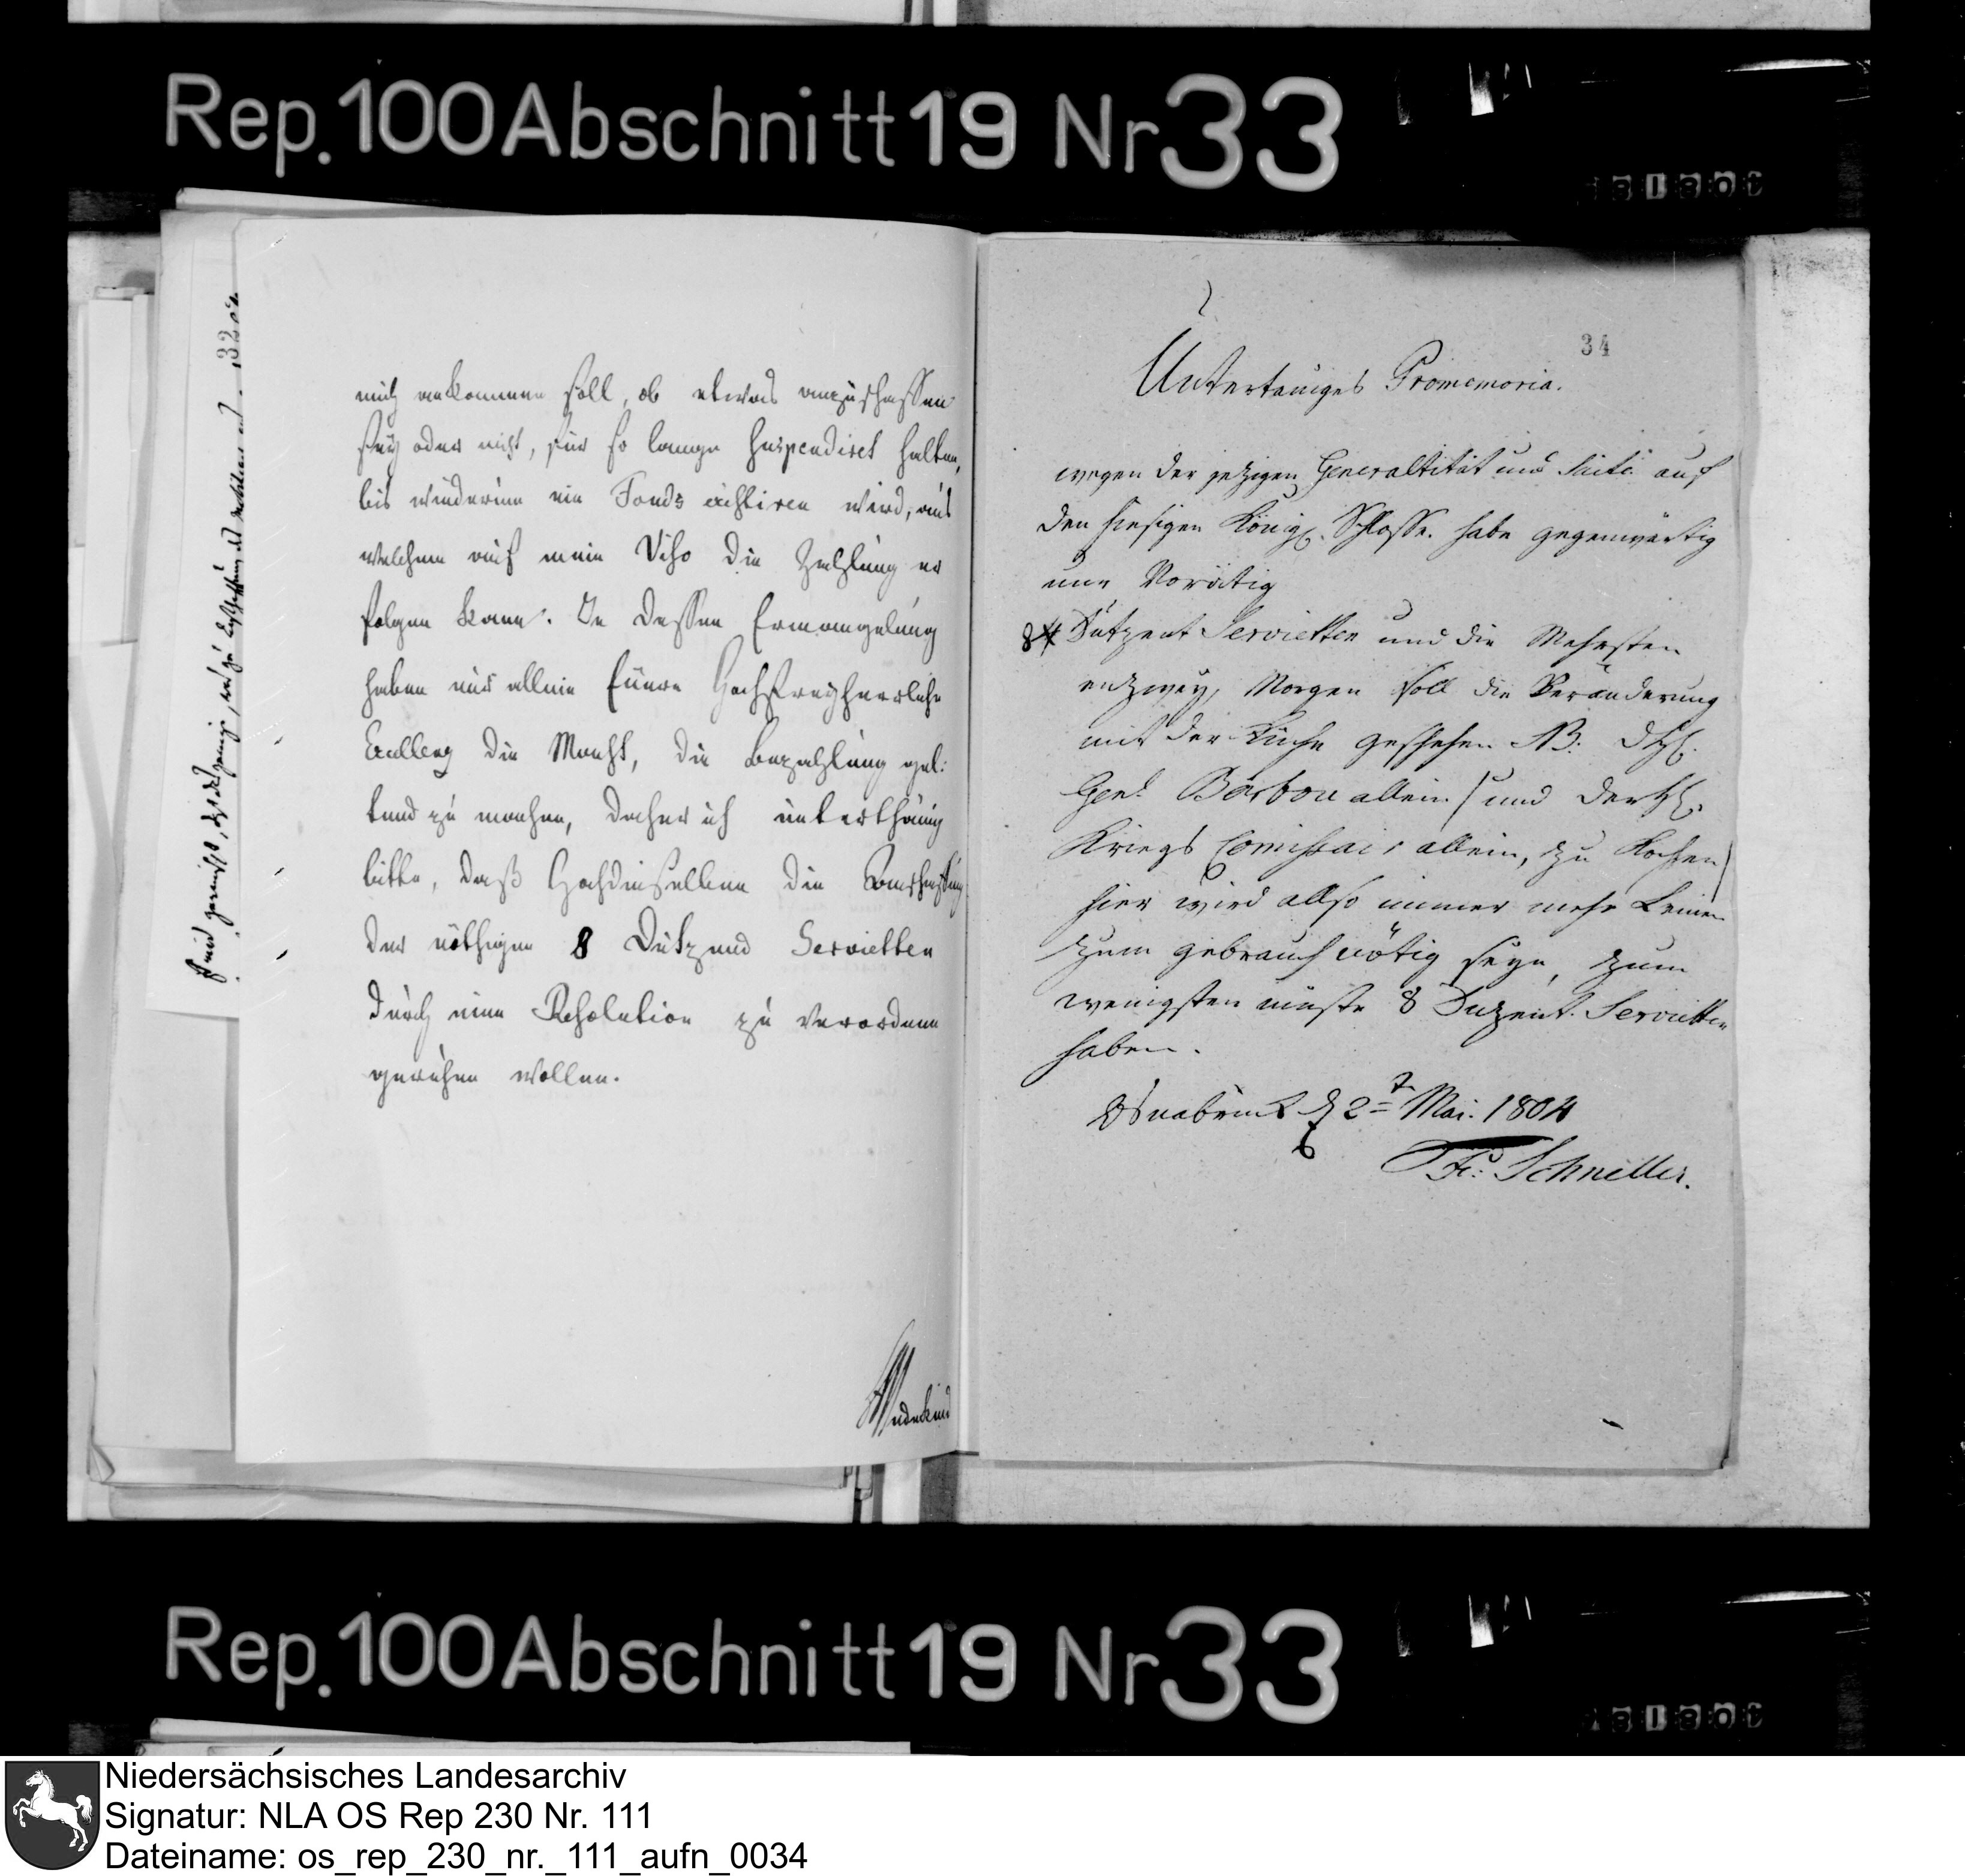 Rep. 100 Abschnitt 19 Nr 33
mich ankommen soll, ob etwas anzuschaffen
sey oder nicht, für so lange suspendiret halten,
bis wiederum ein Fonds existiren wird, aus
welchem auf mein Viso die Zahlung er
folgen kann. In dessen Ermangelung
haben nur allein Euere Hochfreyherrliche
Excellenz die Macht, die Bezahlung gel:
tend zu machen, daher ich unterthänig
bitte, daß Hochdieselben die Anschaffung
der nöthigen 8 Dutzend Servietten
durch eine Resolution zu verordnen
geruhen wollen.
Wedekind
34
Untertäniges Promemoria.
wegen der jetzigen Generaltität und Suite auf
den hiesigen Königl. Schlosse. habe gegenwärtig
nur Vorrätig
8 Dutzent Servietten und die Mehrsten
entzwey, Morgen soll die Veränderung
mit der Küche geschehen NB: d H.
Genl. Barbou allein / und der H.
Kriegs Comissair allein, zu Kochen /
hier wird allso immer mehr Leinen
zum gebrauch nötig seyn, zum
wenigsten müste 8 Duzent. Servietten
haben.
Osnabrück d 2t Mai. 1804
Fr: Schneller.
Rep. 100 Abschnitt 19 Nr 33
Niedersächsisches Landesarchiv
Signatur: NLA OS Rep 230 Nr. 111
Dateiname: os_rep_230_nr._111_aufn_0034